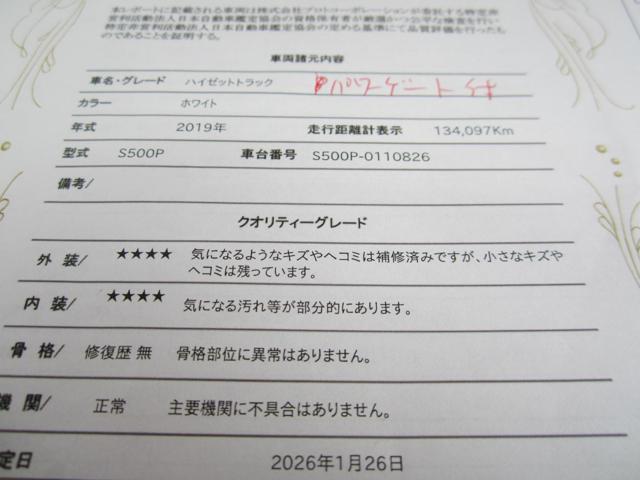 本レポートに記載される車両は株式会社プロトコーポレーションが委託する特定非
営利活動法人日本自動車鑑定協会の資格保有者が厳選かつ公平な検査を行い
特定非営利活動法人日本自動車鑑定協会の定める基準にて品質評価を行ったも
のであることを証明する。
車両諸元内容
車名・グレード ハイゼットトラック パワーゲート付
カラー ホワイト
年式 2019年 走行距離計表示 134,097Km
型式 S500P 車台番号 S500P-0110826
備考/
クオリティーグレード
外 装/ ★★★★ 気になるようなキズやヘコミは補修済みですが、小さなキズや
ヘコミは残っています。
内 装/ ★★★★ 気になる汚れ等が部分的にあります。
骨 格/ 修復歴 無 骨格部位に異常はありません。
機 関/ 正常 主要機関に不具合はありません。
定日 2026年1月26日